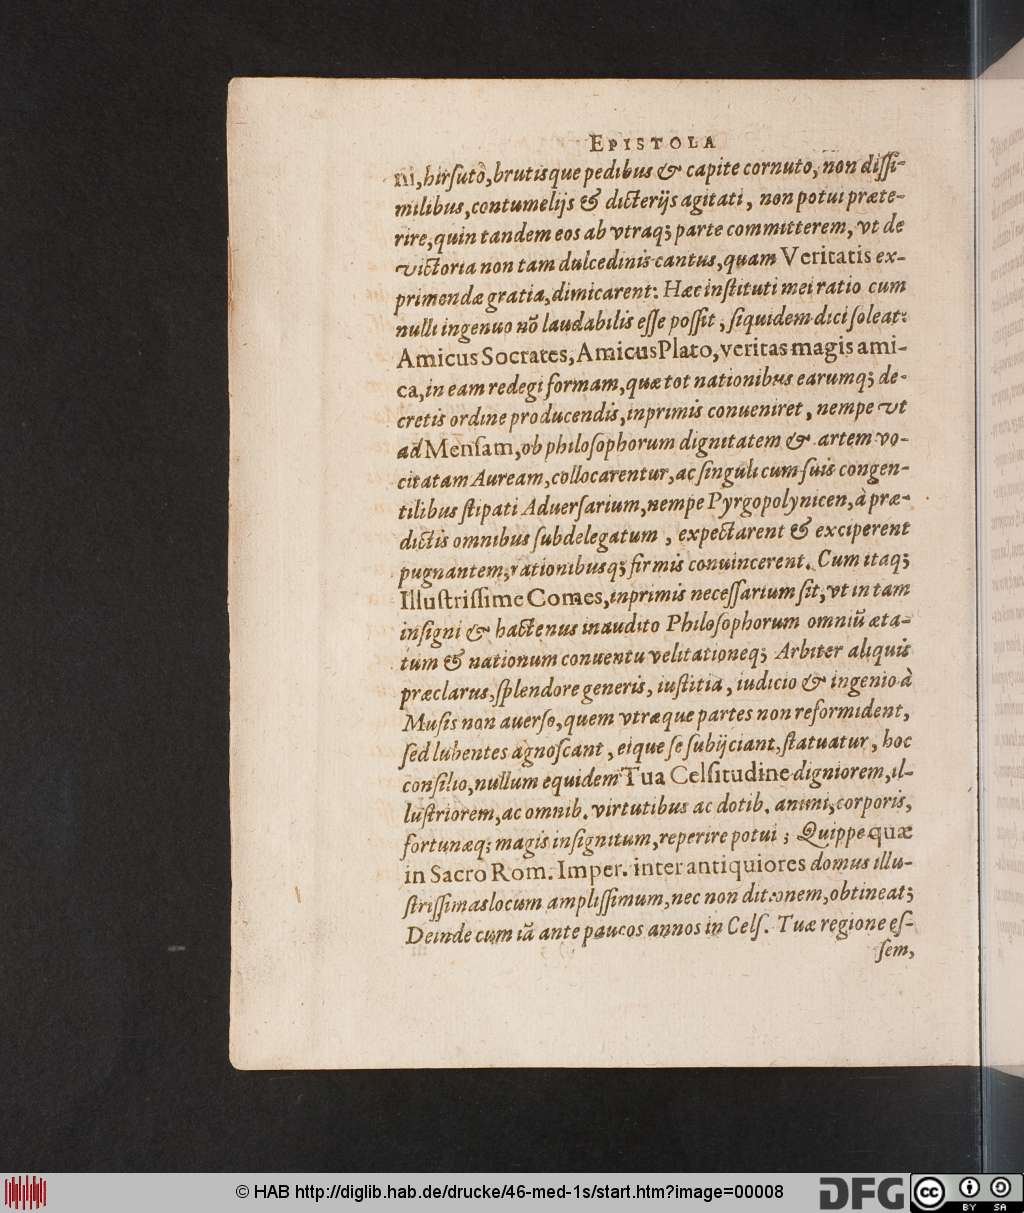 EPISTOLA
ni, hirsuto, brutisque pedibus & capite cornuto, non dissi-
milibus, contumelijs & dicterijs agitati, non potui præte-
rire, quin tandem eos ab vtraq; parte committerem, vt de
victoria non tam dulcedinis cantus, quam Veritatis ex-
primendæ gratia, dimicarent: Hæc instituti mei ratio cum
nulli ingenuo nõ laudabilis esse possit, siquidem dici soleat:
Amicus Socrates, Amicus Plato, veritas magis ami-
ca, in eam redegi formam, quæ tot nationibus earumq; de-
cretis ordine producendis, inprimis conueniret, nempe vt
ad Mensam, ob philosophorum dignitatem & artem vo-
citatam Auream, collocarentur, ac singuli cum suis congen-
tilibus stipati Aduersarium, nempe Pyrgopolynicen, à præ-
dictis omnibus subdelegatum, expectarent & exciperent
pugnantem, rationibusq; firmis conuincerent. Cum itaq;
Illustrissime Comes, inprimis necessarium sit, vt in tam
insigni & hactenus inaudito Philosophorum omniũ æta-
tum & nationum conuentu velitationeq; Arbiter aliquis
præclarus, splendore generis, iustitia, iudicio & ingenio à
Musis non auerso, quem vtræque partes non reformident,
sed lubentes agnoscant, eique se subijciant, statuatur, hoc
consilio, nullum equidem Tua Celsitudine digniorem, il-
lustriorem, ac omnib. virtutibus ac dotib. animi, corporis,
fortunæq; magis insignitum, reperire potui; Quippe quæ
in Sacro Rom. Imper. inter antiquiores domus illu-
strissimas locum amplissimum, nec non ditionem, obtineat;
Deinde cum iã ante paucos annos in Cels. Tuæ regione es-
sem,
© HAB http://diglib.hab.de/drucke/46-med-1s/start.htm?image=00008
DFG
cc
BY SA